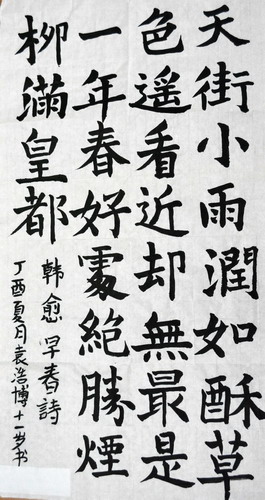 天街小雨潤如酥草
色遥看近却無最是
一年春好處絕勝煙
柳滿皇都
韓愈早春詩
丁酉夏月袁浩博十一岁书